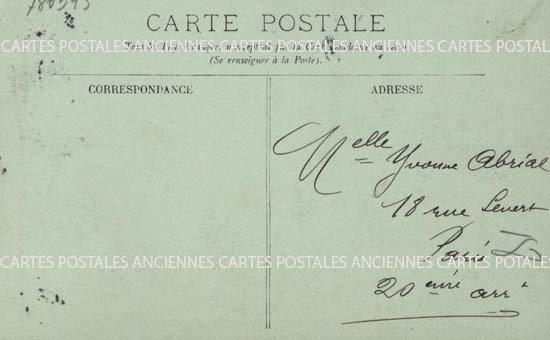 CARTE POSTALE
CARTES POSTALES ANCIENNES CARTES POSTALES ANCIENNES CARTES POSTALES
(Se renseigner à la Poste).
CORRESPONDANCE
ADRESSE
Melle Yvonne Abrial
18 rue Levert
Paris
CARTES POSTALES ANCIENNES CARTES POSTALES ANCIENNES CARTES POSTALES
20 eme arrt